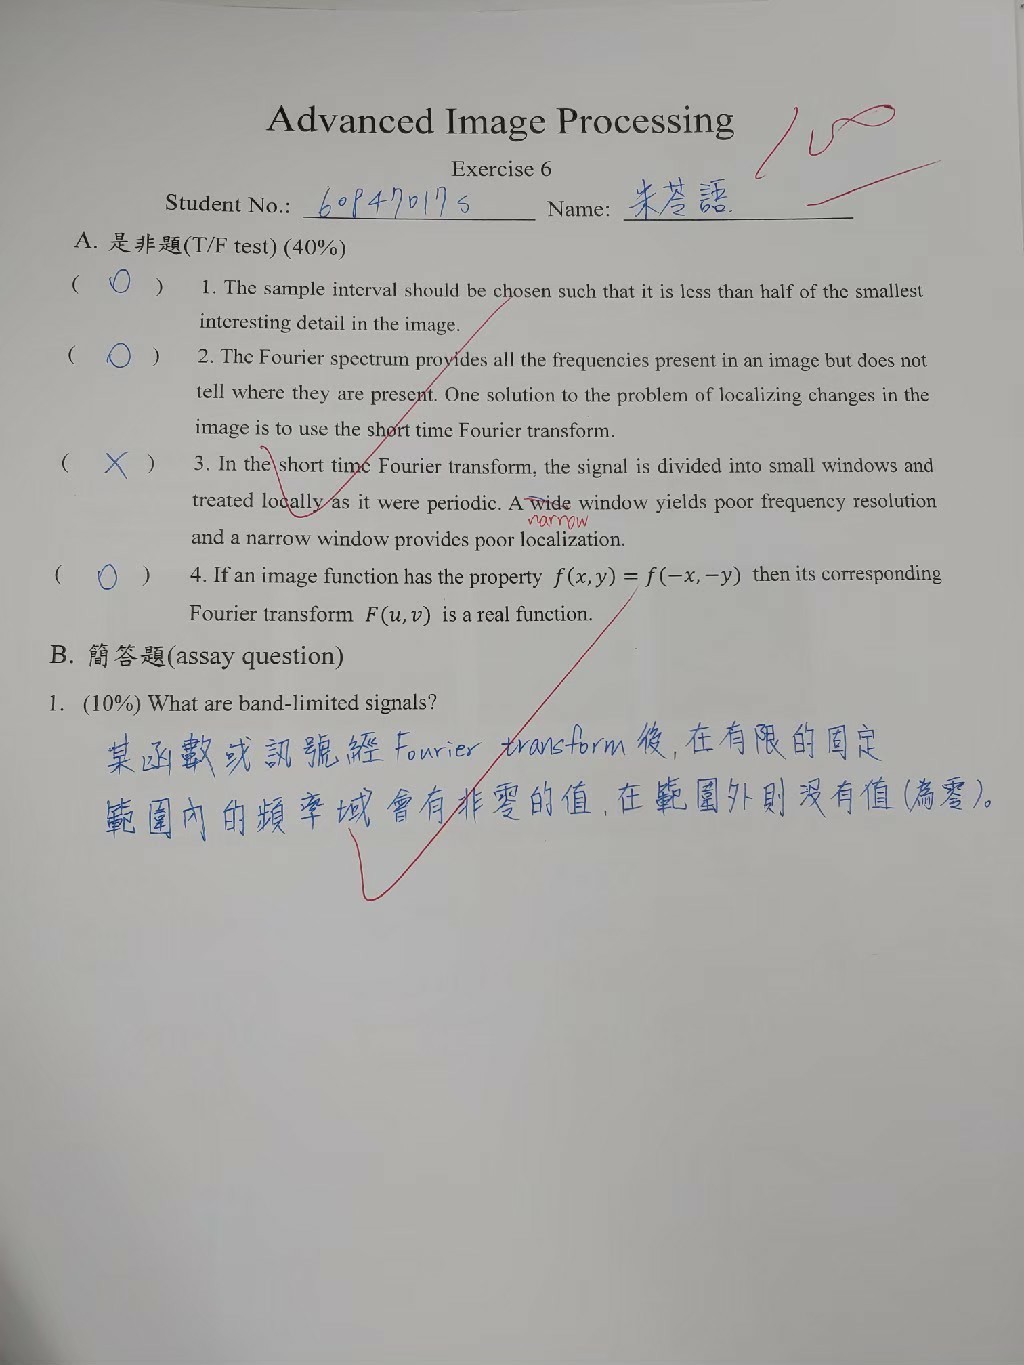 Advanced Image Processing
100
Exercise 6
Student No.: 60847017s Name: 朱苓語
A. 是非題(T/F test) (40%)
( O ) 1. The sample interval should be chosen such that it is less than half of the smallest
interesting detail in the image.
( O ) 2. The Fourier spectrum provides all the frequencies present in an image but does not
tell where they are present. One solution to the problem of localizing changes in the
image is to use the short time Fourier transform.
( X ) 3. In the short time Fourier transform, the signal is divided into small windows and
treated locally as it were periodic. A wide window yields poor frequency resolution
narrow
and a narrow window provides poor localization.
( O ) 4. If an image function has the property f(x,y) = f(−x,−y) then its corresponding
Fourier transform F(u,v) is a real function.
B. 簡答題(assay question)
1. (10%) What are band-limited signals?
某函數或訊號經Fourier transform後,在有限的固定
範圍內的頻率域會有非零的值,在範圍外則沒有值(為零)。